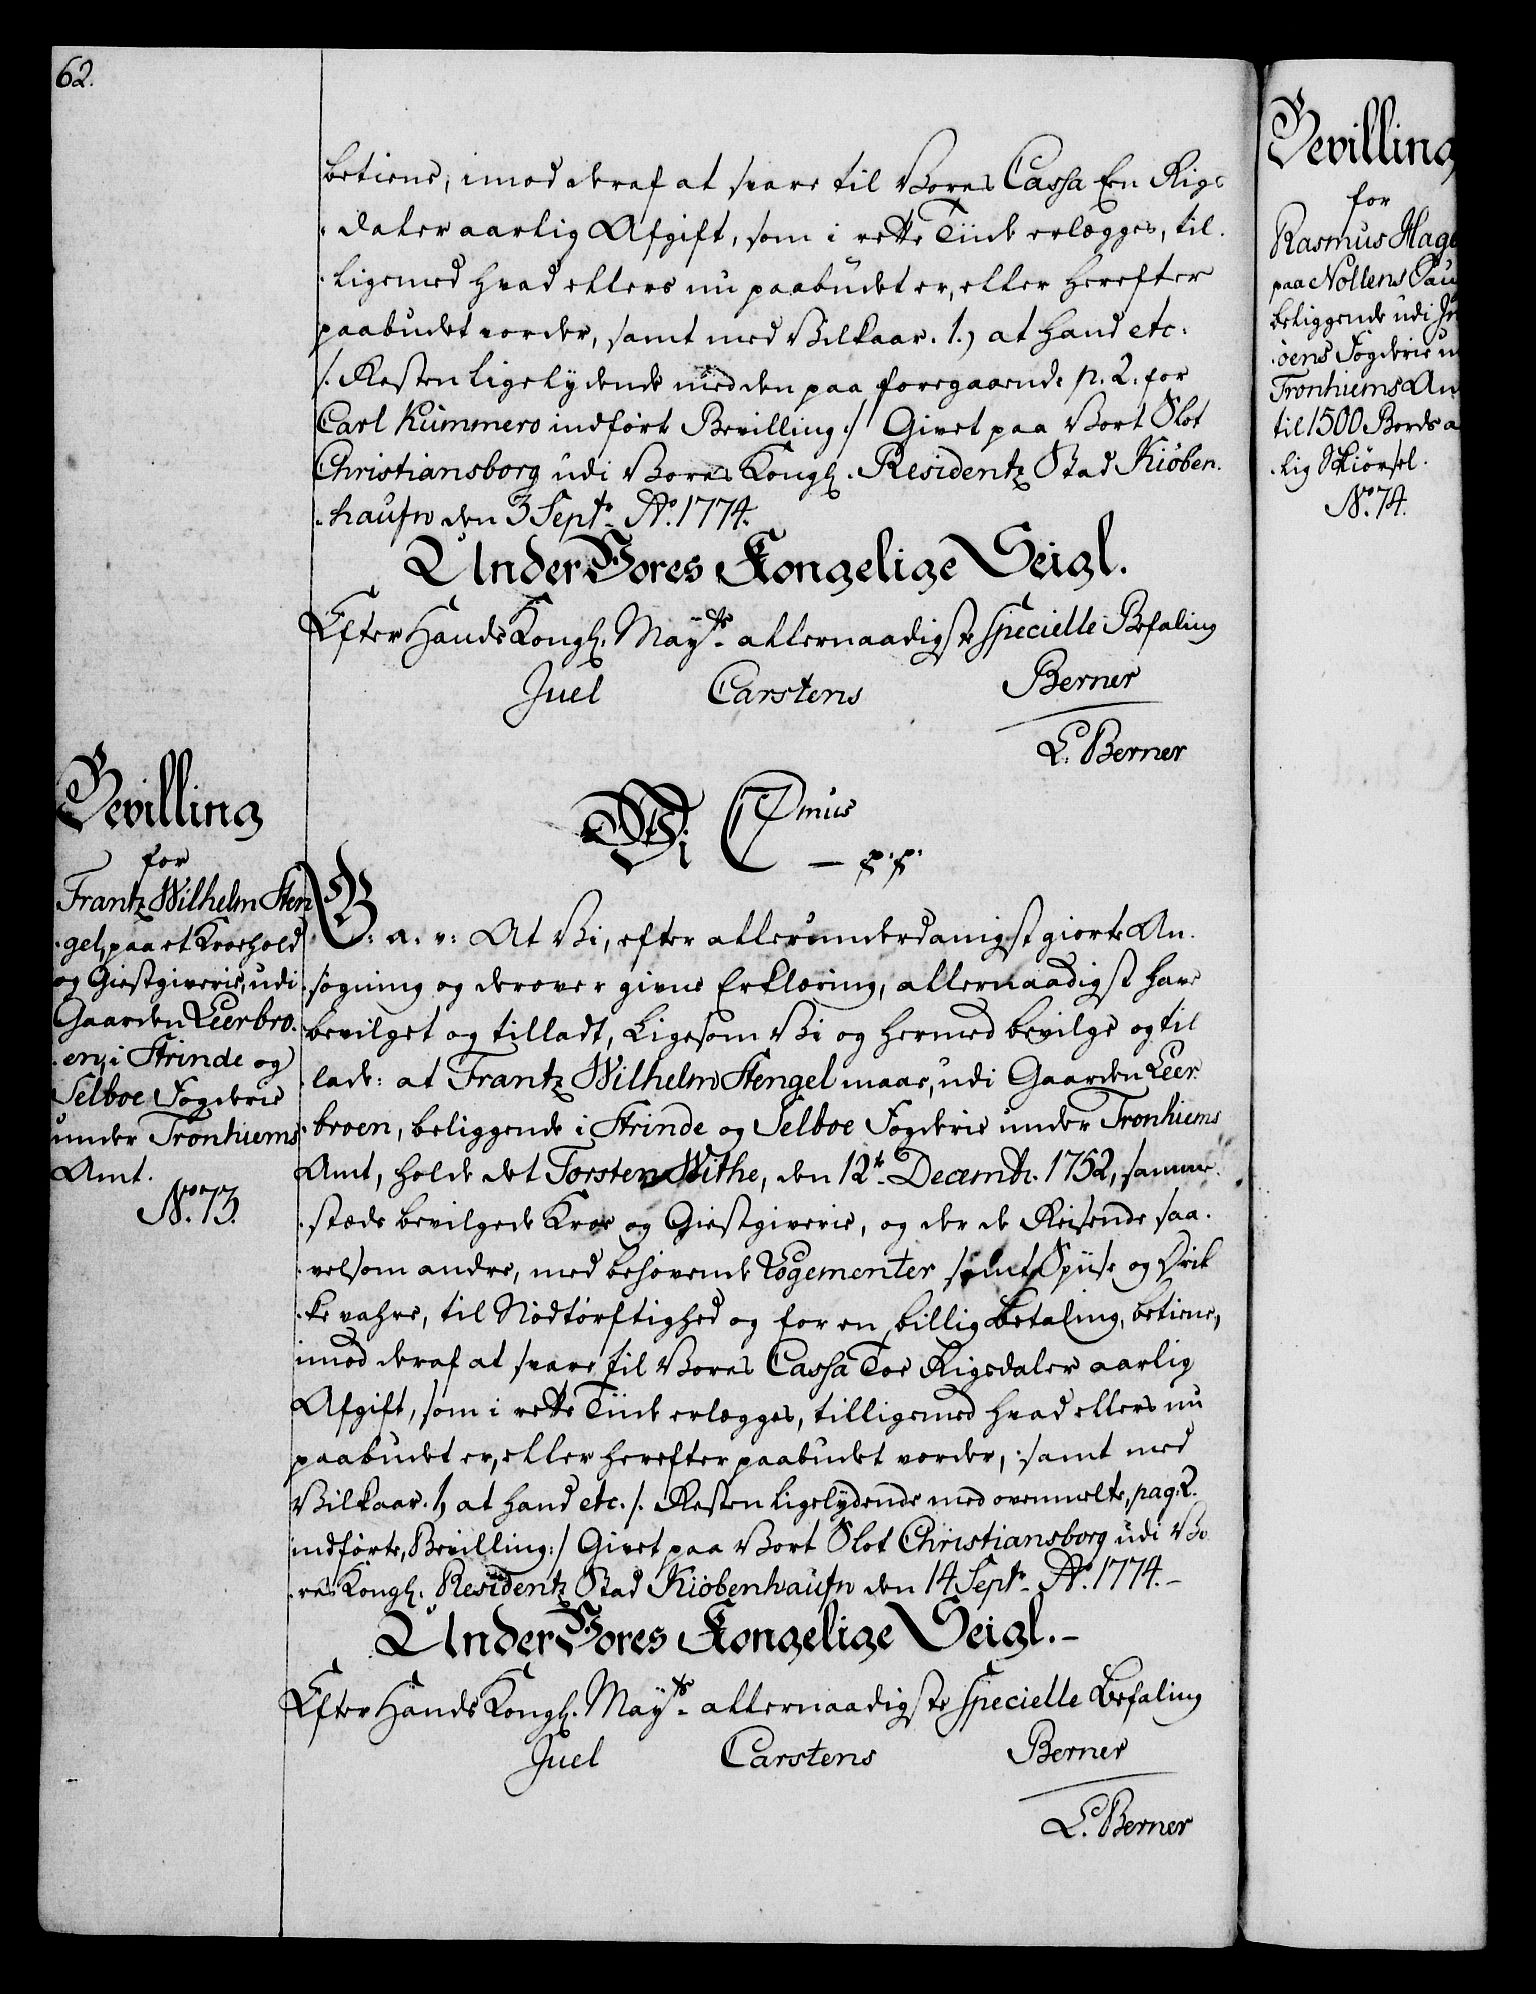 62.
betiene, imod deraf at svare til Vores Cassa Een Rigs
daler aarlig Afgift, som i rette Tiide erlægges, til.
ligemed hvad ellers nu paabudet er, eller herefter
paabudet vorder, samt med Vilkaar. 1.) at hand etc:
/: Resten ligelydende med den paa foregaaende p. 2. for
Carl Kümmero indførte Bevilling :/ Givet paa Vort Slot
Christiansborg udi Vores Kongl. Residentz Stad Kiöben.
haufn den 3 Septr. Ao. 1774.
Under Vores Kongelige Seigl.
Efter Hands Kongl. Mayts. allernaadigste specielle Befaling
Juel Carstens Berner
L. Berner
Bevilling
for
Frantz Wilhelm Sten
gel, paa et Kroehold
og Giestgiverie, udi
Gaarden Leerbro.
en, i Strinde og
Selboe Fogderie
under Tronhiems
Amt.
No. 73.
Wi C7mus
p. p.
G. a. v: At Vi, efter allerunderdanigst giorte An.
søgning og derover givne Erklæring, allernaadigst have
bevilget og tilladt, ligesom Vi og hermed bevilge og til
lade: at Frantz Wilhelm Stengel maae, udi Gaarden Leer.
broen, beliggende i Strinde og Selboe Fogderie under Tronhiems
Amt, holde det Torsten Withe, den 12te Decembr. 1752, samme.
stæde bevilgede Kroe og Giestgiverie, og der de Reisende saa.
velsom andre, med behøvende Logementer samt Spiise og Drik
ke vahre, til Nødtørftighed og for en billig Betaling, betiene,
imod deraf at svare til Vores Cassa Toe Rigsdaler aarlig
Afgift, som i rette Tiide erlægges, tilligemed hvad ellers nu
paabudet er, eller herefter paabudet vorder, samt med
Vilkaar. 1, at hand etc. /: Resten ligelydende med ovenmelte, pag. 2.
indførte, Bevilling :/ Givet paa Vort Slot Christiansborg udi Vo
res Kongl. Residentz Stad Kiöbenhaufn den 14 Septr. Ao. 1774.
Under Vores Kongelige Seigl.
Efter Hands Kongl. Mayts. allernaadigste specielle Befaling
Juel Carstens Berner
L. Berner
Bevilling
for
Rasmus Hage
paa Nollens Sau
beliggende udi
öens Fogderie u
Tronhiems Am
til 1500 Bords a
lig Skiörsel.
No. 74.